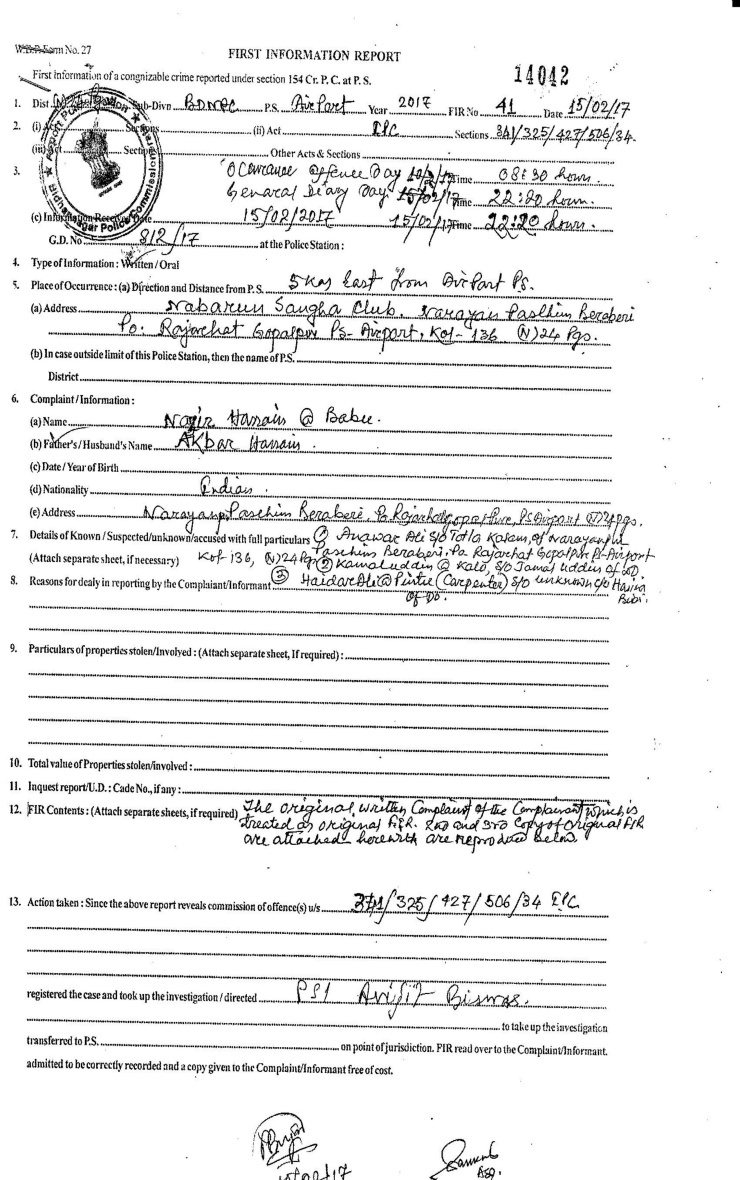 W.B.P. Form No. 27
FIRST INFORMATION REPORT
First information of a congnizable crime reported under section 154 Cr. P. C. at P. S.
14042
1. Dist. Sub-Divn BDNPC P.S. AirPort Year 2017 FIR No 41 Date 15/02/17
2. (i) Act Sections (ii) Act IPC Sections 341/325/427/506/34.
(iii) Act Sections Other Acts & Sections
3. Occurance Offence Day Time 08:30 hours.
General Diary Day 15/02/17 Time 22:20 hours.
(c) Information Received Date 15/02/2017 15/02/17 Time 22:20 hours.
G.D. No 812/17 at the Police Station :
4. Type of Information : Written / Oral
5. Place of Occurrence : (a) Direction and Distance from P. S. 5 Kms East from AirPort Ps.
(a) Address Nabarun Sangha Club, Narayan Paschim Beraberi
Po: Rajarhat Gopalpur Ps- Airport, Kol- 136 (N) 24 Pgs.
(b) In case outside limit of this Police Station, then the name of P.S.
District
6. Complaint / Information :
(a) Name Nazir Hassain @ Babu.
(b) Father's / Husband's Name AKbar Hassain.
(c) Date / Year of Birth
(d) Nationality Indian.
(e) Address Narayanp Paschim Beraberi, Po. Rajarhat gopalpur, Ps Airport (N) 24 pgs.
7. Details of Known / Suspected/unknown/accused with full particulars ① Anawar Ali S/o Totla Kasam, of Narayanpur
Paschim Beraberi, Po. Rajarhat Gopalpur Ps-Airport
(Attach separate sheet, if necessary) Kol-136, (N) 24 Pgs ② Kamaluddin @ Kalo, S/o Jamal Uddin of DO
8. Reasons for dealy in reporting by the Complaiant/Informant ③ Haidar Ali @ Pintu (Carpenter) S/o unknown C/o Bibi.
of Do.
9. Particulars of properties stolen/Involved : (Attach separate sheet, If required) :
10. Total value of Properties stolen/involved :
11. Inquest report/U.D. : Cade No., if any :
12. FIR Contents : (Attach separate sheets, if required) The original written Complaint of the Complainant which is
treated as original FIR. 2nd and 3rd Copy of original FIR
are attached herewith are reproduced below
13. Action taken : Since the above report reveals commission of offence(s) u/s 341/325/427/506/34 IPC
registered the case and took up the investigation / directed PSI Avijit Biswas.
to take up the investigation
transferred to P.S. on point of jurisdiction. FIR read over to the Complaint/Informant.
admitted to be correctly recorded and a copy given to the Complaint/Informant free of cost.